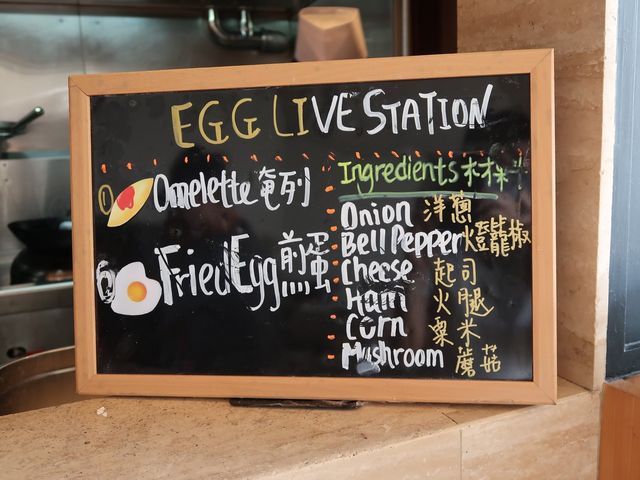 EGG LIVE STATION
① Omelette 奄列
Fried Egg 煎蛋
Ingredients
Onion 洋蔥
Bell Pepper 燈籠椒
Cheese 起司
Ham 火腿
Corn 粟米
Mushroom 蘑菇